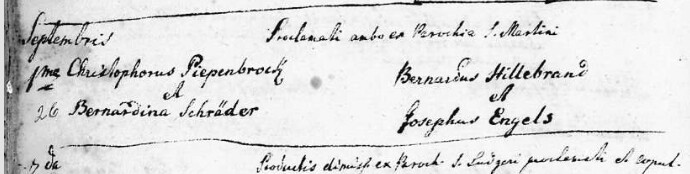 Septembris Proclamati ambo ex Parochia S. Martini
1ma Christophorus Piepenbrock Bernardus Hillebrand
et et
26 Bernardina Schräder Josephus Engels
7 da Productis dimiss. ex Paroch. S. Ludgeri proclamati et copul.